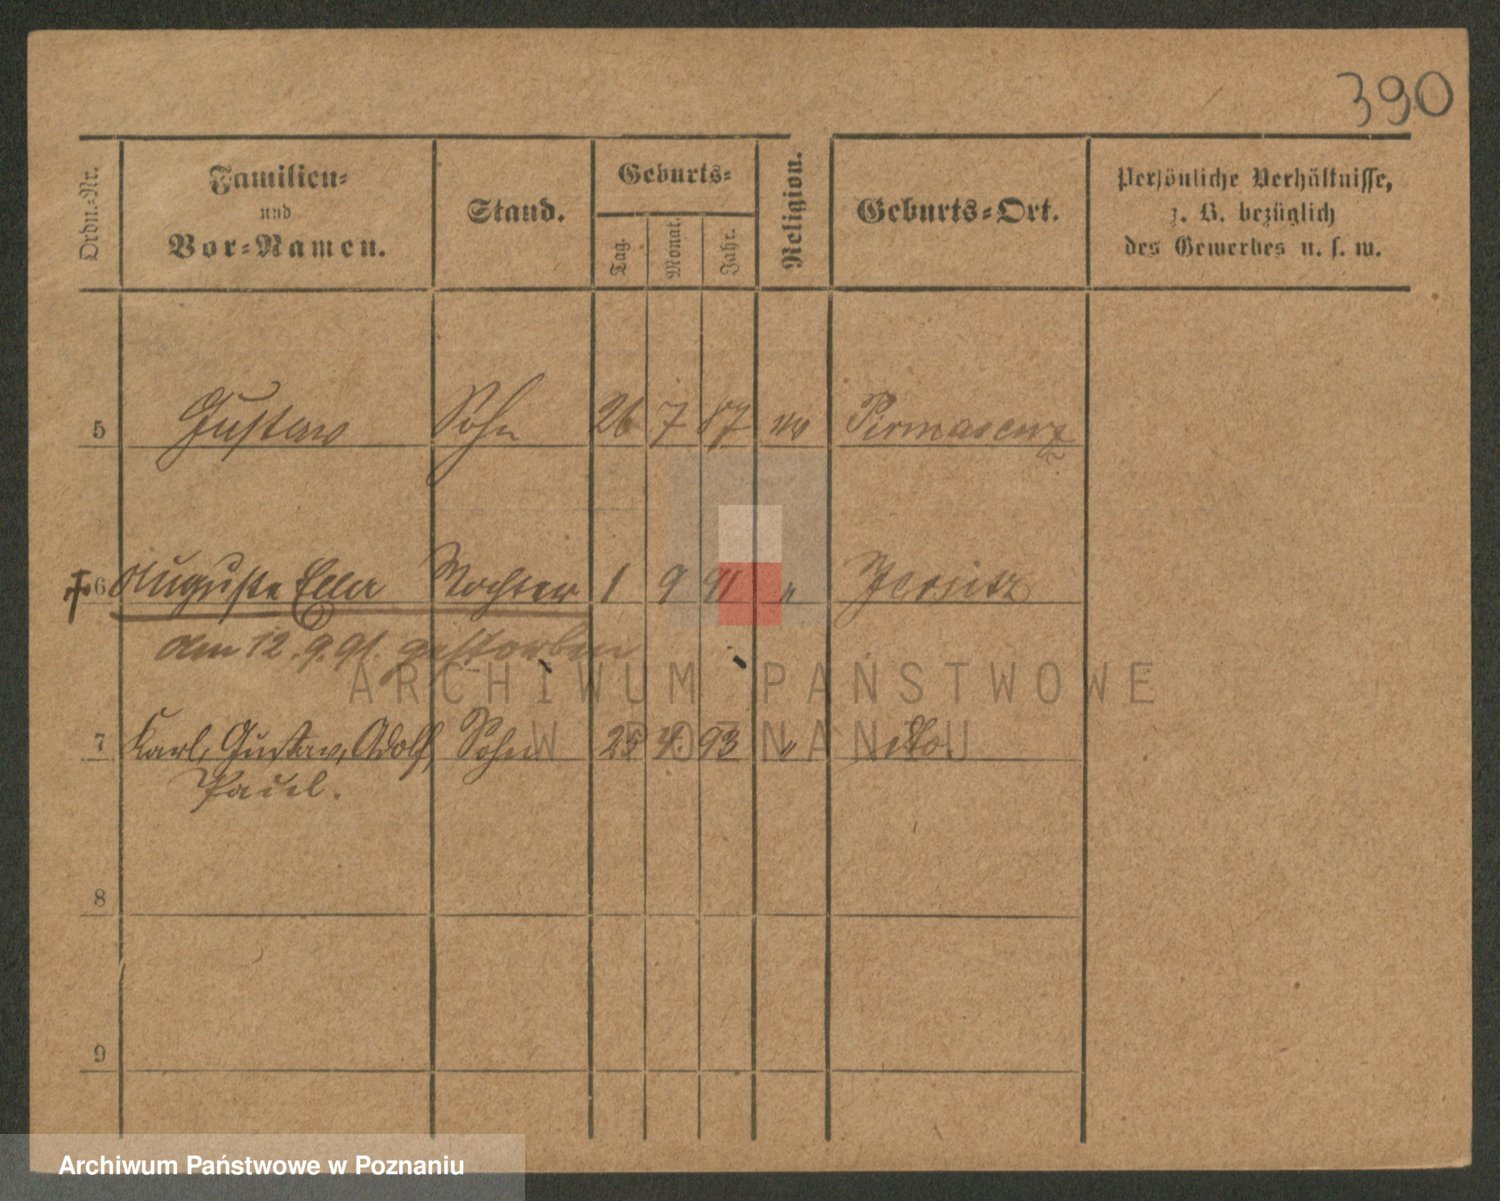 390
Ordn.-Nr.
Familien-
und
Vor-Namen.
Stand.
Geburts-
Tag.
Monat.
Jahr.
Religion.
Geburts-Ort.
Persönliche Verhältnisse,
z. B. bezüglich
des Gewerbes u. s. w.
5 Gustav Sohn 26 7 87 ev Pirmasenz
6 Auguste Ella Tochter 1 9 91 " Jersitz
den 12.9.91. gestorben
7 Karl, Gustav, Adolf, Sohn 25 4. 93 " dto.
Paul.
8
9
ARCHIWUM PAŃSTWOWE
W POZNANIU
Archiwum Państwowe w Poznaniu